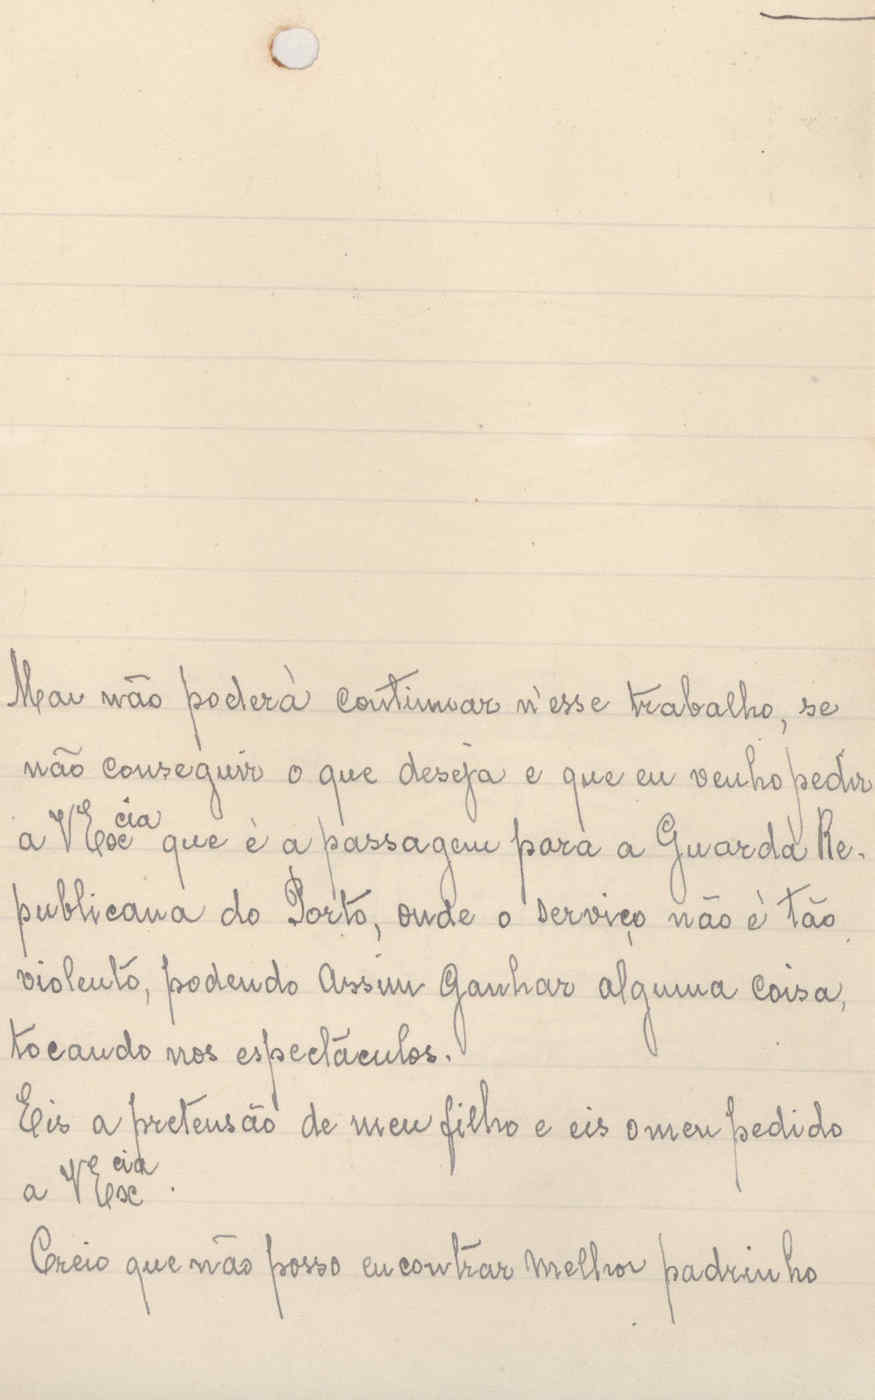 Mau não poderà continuar n'esse trabalho, se
não conseguir o que deseja e que eu venho pedir
a V Excia que è a passagem para a Guarda Re-
publicana do Porto, onde o serviço não è tão
violento, podendo assim ganhar alguma coisa,
tocando nos espectáculos.
Eis a pretensão de meu filho e eis o meu pedido
a V Excia.
Creio que não posso encontrar melhor padrinho